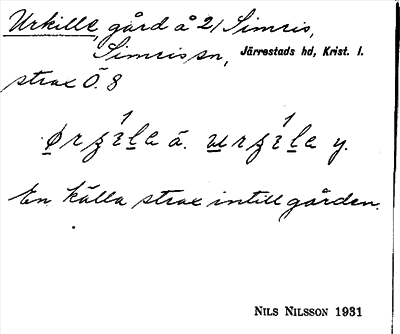 Urkille, gård å 21 Simris,
Simris sn, Järrestads hd, Krist. l.
strax Ö. 8
En källa strax intill gården.
NILS NILSSON 1931